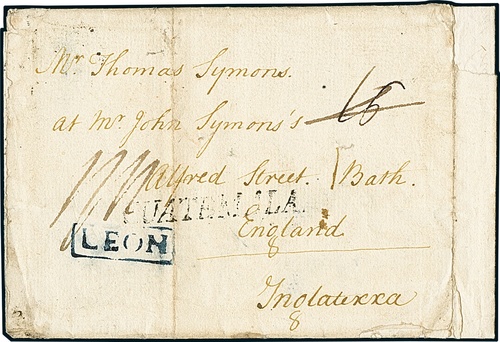 Mr Thomas Symons.
at Mr John Symons's
16
Alfred Street. Bath.
GUATEMALA
England
8
LEON
Inglaterra
8